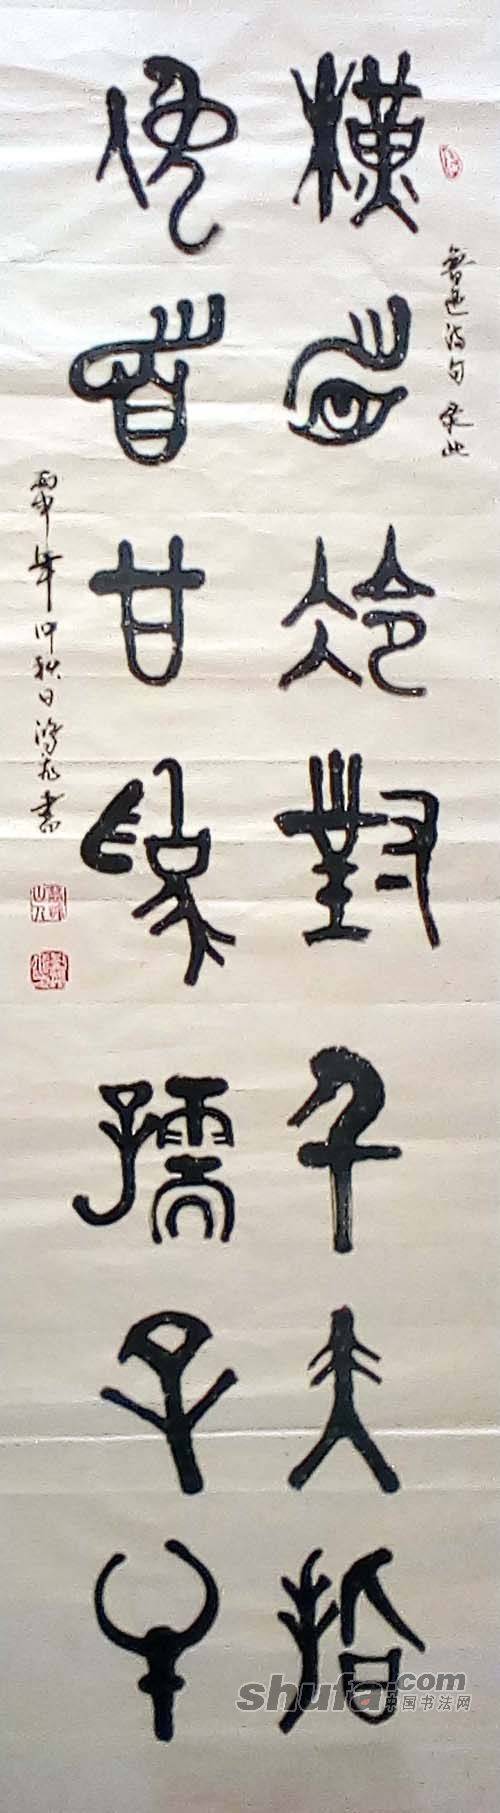 魯迅詩句 录此
橫眉冷對千夫指
俛首甘為孺子牛
丙申年仲秋日書
shufa.com
中国书法网